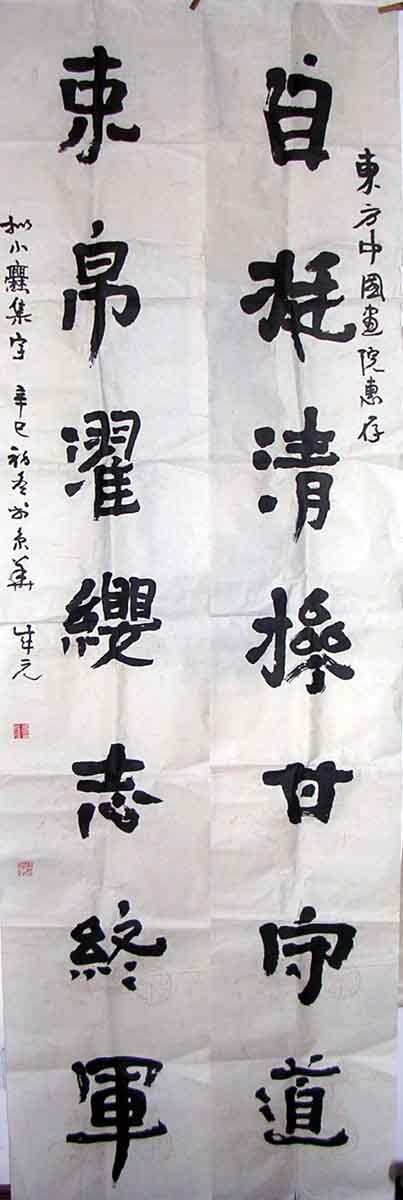 東方中國畫院惠存
自挺清操甘守道
束帛濯纓志終軍
拟小爨集字 辛巳初冬於京華